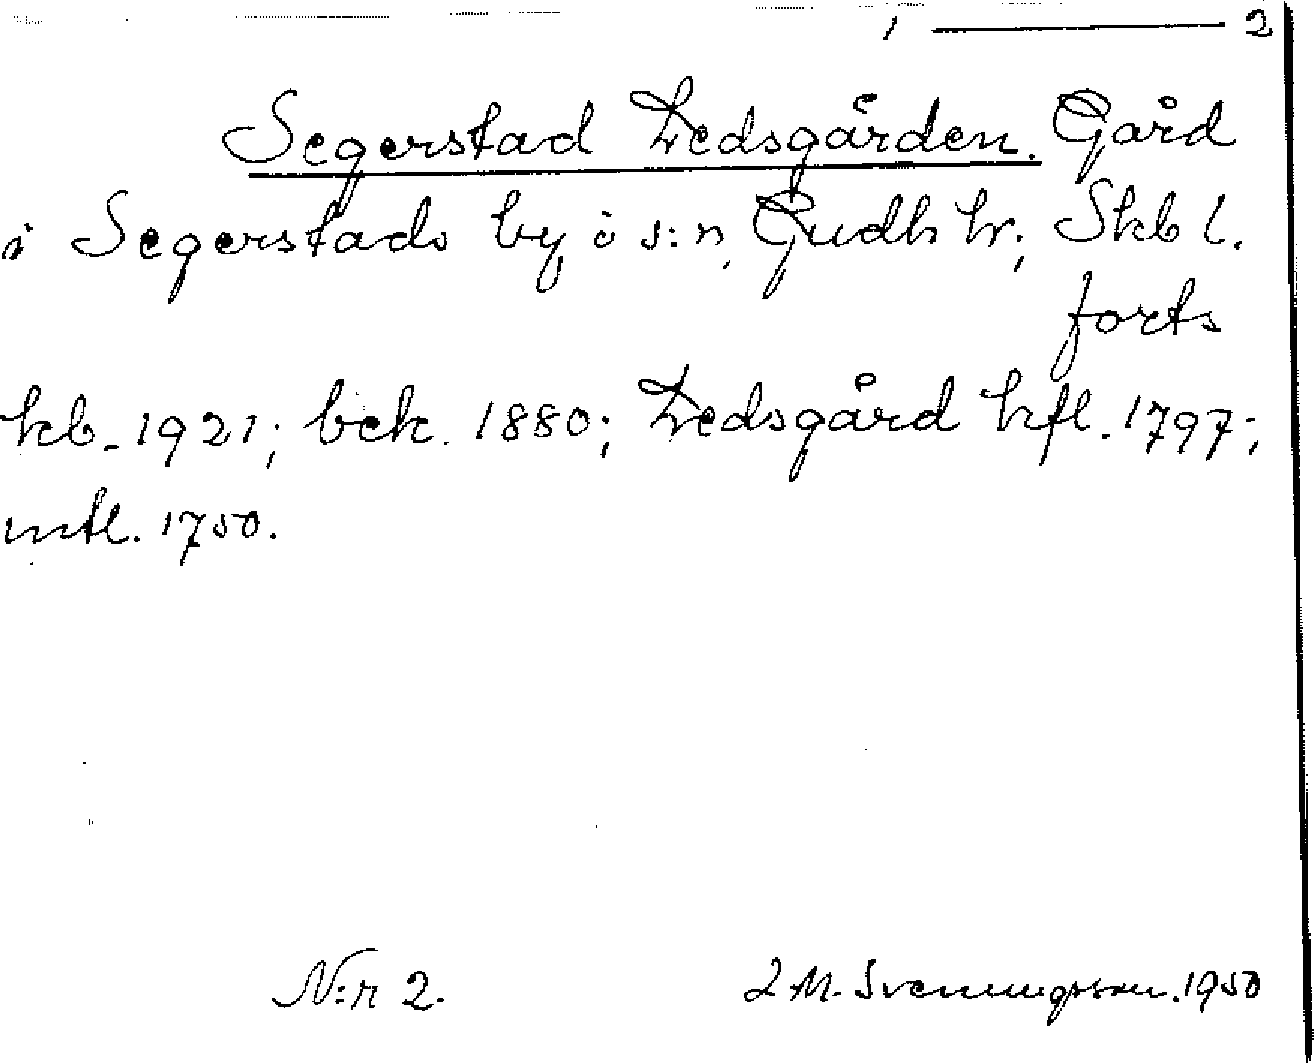 1 — 2
Segerstad Ledsgården. Gård
i Segerstads by i s:n, Gudh hr; Skb l.
forts
kb. 1921; bek. 1880; Ledsgård hfl. 1797;
mtl. 1750.
N:r 2. L M. Svenungsson. 1950